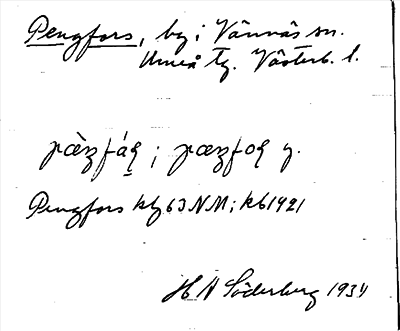 Pengfors, by i Vännäs sn.
Umeå tg. Västerb. l.
Pengfors kby 63 NM; kb 1921
H N Söderberg 1934